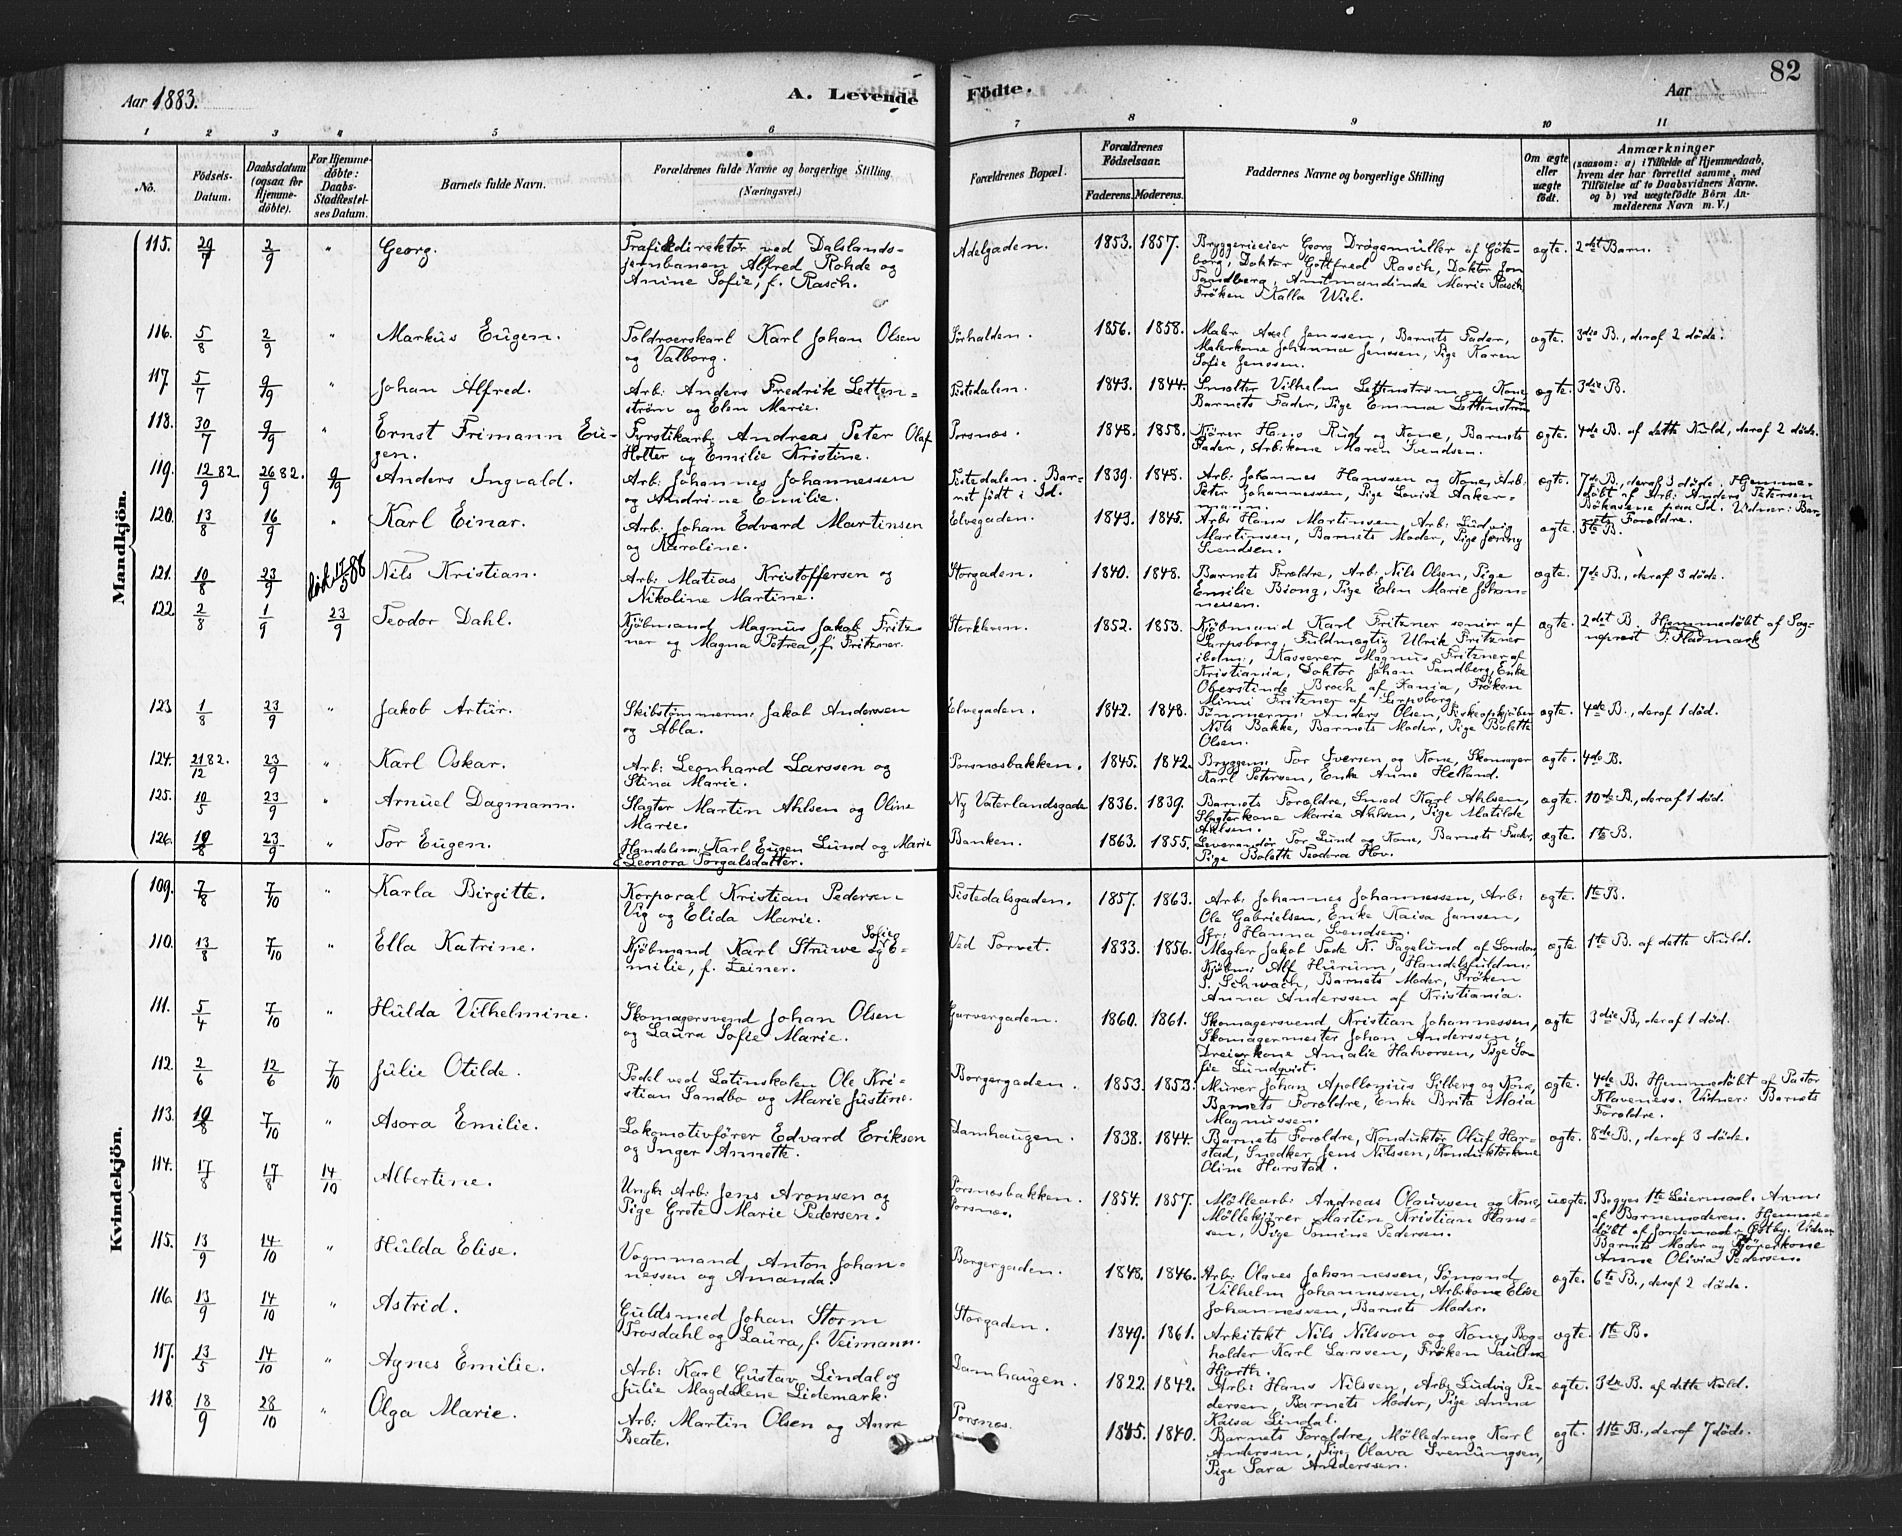 Aar 1883.
A. Levende Födte.
Aar
82
1 2 3 4 5 6 7 8 9 10 11
No.
Födsels-Datum.
Daabsdatum (ogsaa for Hjemme-döbte).
For Hjemme-döbte: Daabs-Stadfæstel-ses Datum.
Barnets fulde Navn.
Forældrenes fulde Navne og borgerlige Stilling (Næringsvei.)
Forældrenes Bopæl.
Forældrenes Födselsaar.
Faderens. Moderens.
Faddernes Navne og borgerlige Stilling
Om ægte eller uægte födt.
Anmærkninger
(saasom: a) i Tilfælde af Hjemmedaab, hvem der har forrettet samme, med Tilföielse af to Daabsvidners Navne. og b) ved uægtefödte Börn An-melderens Navn m. V.)
Mandkjön.
115. 29/7 2/9 " Georg. Trafikdirektør ved Dalslands-
jernbanen Alfred Rohde og
Anine Sofie, f. Rasch.
Adelgaden. 1853. 1857. Bryggerieier Georg Drögemüller af Göte-
borg, Doktor Gottfred Rasch, Doktor Jon
Sandberg, Amtmandinde Marie Rasch,
Frøken Kalla Wiel.
ægte. 2det Barn.
116. 5/8 2/9 " Markus Eugen. Toldroerskarl Karl Johan Olsen
og Valborg.
Sørhalden. 1856. 1858. Maler Axel Jenssen, Barnets Fader,
Malerkone Johanna Jenssen, Pige Karen
Sofie Jenssen.
ægte. 3die B., deraf 2 døde.
117. 5/7 9/9 " Johan Alfred. Arb: Anders Fredrik Letten-
strøm og Elen Marie.
Tistedalen. 1843. 1844. Smelter Vilhelm Lettenstrøm og Kone,
Barnets Fader, Pige Emma Lettenstrøm
ægte. 3die B.
118. 30/7 9/9 " Ernst Frimann Eu-
gen.
Fyrstikarb. Andreas Peter Olaf
Holter og Emilie Kristine.
Porsnæs. 1848. 1858. Kjører Hans Rud og Kone, Barnets
Fader, Arbkone Maren Svendsen.
ægte. 4de B. af dette Kuld, deraf 2 døde.
119. 12/9 82. 26/9 82. 9/9 Anders Ingvald. Arb: Johannes Johannessen
og Andrine Emilie.
Tistedalen. Bar-
net født i Id.
1839. 1848. Arb: Johannes Hanssen og Kone, Arb:
Peter Johannessen, Pige Lovise Aaker-
mann.
ægte. 7de B., deraf 3 døde. Hjemme-
døbt af Arb: Anders Petersen
paa Id. Vidner: Bar-
nets Forældre.
120. 13/8 16/9 " Karl Einar. Arb: Johan Edvard Martinsen
og Karoline.
Elvegaden. 1843. 1845. Arb: Hans Martinsen, Arb: Ludvig
Martinsen, Barnets Moder, Pige Jenny
Svendsen.
ægte. 5te B.
121. 10/8 23/9 død 17/5 88 Nils Kristian. Arb: Matias Kristoffersen og
Nikoline Martine.
Storgaden. 1840. 1848. Barnets Forældre, Arb: Nils Olsen, Pige
Emilie Biong, Pige Elen Marie Johan-
nessen.
ægte. 7de B., deraf 3 døde.
122 2/8 1/9 23/9 Teodor Dahl. Kjøbmand Magnus Jakob Fritz-
ner og Magna Petrea, f. Fritzner.
1852. 1853. Kjøbmand Karl Fritzner senior af
Sarpsborg, Fuldmægtig Ulrik Fritzner
ibidm:, Kasserer Magnus Fritzner af
Kristiania, Doktor Johan Sandberg, Enke
Oberstinde Broch af Kania, Frøken
Mimi Fritzner af Sarpsborg.
ægte. 2det B. Hjemmedøbt af Sog-
neprest F. Hadmark
123 1/8 23/9 " Jakob Artur. Skibstømmerm: Jakob Anderssen
og Abla.
Elvegaden. 1842. 1848. Tømmerm: Anders Olsen, Fiskeopkjøber
Nils Bakke, Barnets Moder, Pige Bolette
Olsen.
ægte. 4de B., deraf 1 død.
124. 21/12 82. 23/9 " Karl Oskar. Arb: Leonhard Larssen og
Stina Marie.
Porsnæsbakken. 1845. 1842. Bryggem: Tor Iversen og Kone, Skomager
Karl Petersen, Enke Anne Helland.
ægte. 4de B.
125. 10/5 23/9 " Arnuel Dagmann. Slagter Martin Ahlsen og Oline
Marie.
Ny Vaterlandsgade 1836. 1839. Barnets Forældre, Smed Karl Ahlsen,
Slagterkone Maria Ahlsen, Pige Matilde
Ahlsen.
ægte. 10de B., deraf 1 død.
126. 19/8 23/9 " Tor Eugen. Handelsm: Karl Eugen Lund og Marie
Leonora Torgalsdatter.
Banken. 1863. 1855. Leverandør Tor Lund og Kone, Barnets Fader,
Pige Bolette Teodora Hov.
ægte. 1te B.
Kvindekjön.
109. 7/8 7/10 " Karla Birgitte. Korporal Kristian Pedersen
Vig og Elida Marie.
Tistedalsgaden. 1857. 1863. Arb: Johannes Johannessen, Arb:
Ole Gabrielsen, Enke Kaisa Jansen,
Hanna Svendsen.
ægte. 1te B.
110. 13/8 7/10 " Ella Katrine. Kjøbmand Karl Struwe og Sofie E-
milie, f. Zeiner.
Ved Torvet. 1833. 1856. Megler Jakob Tode K. Fagelund af London,
Kjøbm: Alf Hurum, Handelsfuldm:
P. Schwach, Barnets Moder, Frøken
Anna Anderssen af Kristiania.
ægte 1te B. af dette Kuld.
111. 5/4 7/10 " Hulda Vilhelmine. Skomagersvend Johan Olsen
og Laura Sofie Marie.
Garvergaden. 1860. 1861. Skomagersvend Kristian Johannessen,
Skomagermester Johan Anderssen,
Dreierkone Amalie Halvorsen, Pige So-
fie Lundqvist.
ægte 3die B, deraf 1 død.
112. 2/6 12/6 7/10 Julie Otilde. Pedel ved Latinskolen Ole Kri-
stian Sandbo og Marie Justine.
Borgergaden. 1853. 1853. Murer Johan Apollonius Silberg og Kone,
Barnets Forældre, Enke Brita Maia
Magnussen.
ægte. 4de B. Hjemmedøbt af Pastor
Klaveness. Vidner: Barnets
Forældre.
113. 19/8 7/10 " Asora Emilie. Lokomotivfører Edvard Erikson
og Inger Annette.
Damhaugen. 1838. 1844. Barnets Forældre, Konduktør Oluf Har-
stad, Snedker Jens Nilssen, Konduktørkone
Oline Harstad.
ægte. 8de B., deraf 3 døde.
114. 17/8 17/8 14/10 Albertine. Ungk: Arb: Jens Aronsen og
Pige Grete Marie Pedersen.
Porsnæsbakken.
Porsnæs.
1854. 1857. Møllearb: Andreas Olaussen og Kone,
Møllekjører Martin Kristian Hans-
sen, Pige Tomine Pedersen.
uægte. Begges 1te Leiermaal. Anm:
af Barnemoderen. Hjemme-
døbt af Jordemoder Østby. Vidner
Barnets Moder og Kjørerkone
Anne Olivia Pedersen.
115. 13/9 14/10 " Hulda Elise. Vognmand Anton Johan-
nessen og Amanda.
Borgergaden. 1848. 1846. Arb: Olaves Johannessen, Sømand
Vilhelm Johannessen, Arbkone Elise
Johannessen, Barnets Moder.
ægte. 6te B., deraf 2 døde.
116. 13/9 14/10 " Astrid. Guldsmed Johan Storm
Trosdahl og Laura, f. Veimann.
Storgaden. 1849. 1861. Arkitekt Nils Nilsson og Kone, Bog-
holder Karl Larssen, Frøken Pauline
Hjorth.
ægte. 1te B.
117. 13/5 14/10 " Agnes Emilie. Arb: Karl Gustav Lindal og
Julie Magdalene Lidemark.
Damhaugen. 1822. 1842. Arb: Hans Nilssen, Arb: Ludvig Pe-
dersen, Barnets Moder, Pige Anna
Kaisa Lindal.
ægte. 3die B. af dette Kuld.
118. 18/9 28/10 " Olga Marie. Arb: Martin Olsen og Anne
Beate.
Porsnæs. 1845. 1840. Barnets Forældre, Mølledreng Karl
Anderssen, Pige Olava Svenungsen,
Pige Sara Anderssen.
ægte. 11te B., deraf 7 døde.